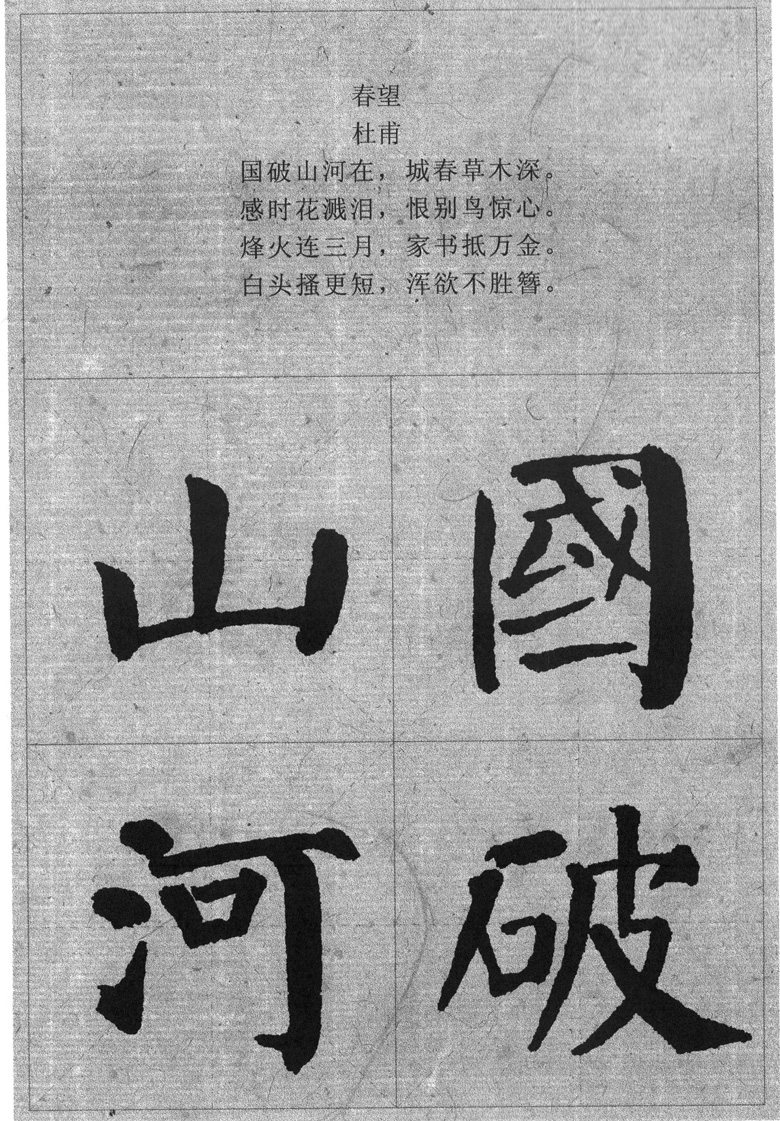 春望
杜甫
国破山河在，城春草木深。
感时花溅泪，恨别鸟惊心。
烽火连三月，家书抵万金。
白头搔更短，浑欲不胜簪。
國破
山河